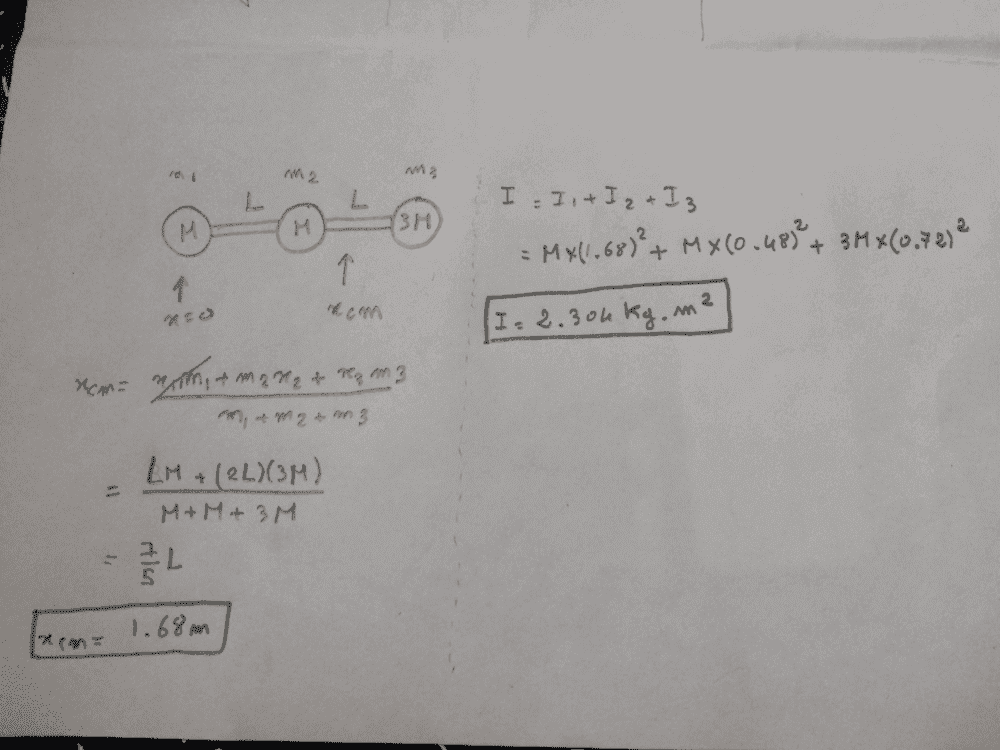 m₁ m₂ m₃
L L
M M 3M
x=0 xcm
xcm= x₁m₁ + m₂x₂ + x₃m₃
m₁ + m₂ + m₃
= LM + (2L)(3M)
M+M+3M
= 7/5 L
xcm= 1.68m
I = I₁ + I₂ + I₃
= M×(1.68)² + M×(0.48)² + 3M×(0.72)²
I= 2.304 kg.m²